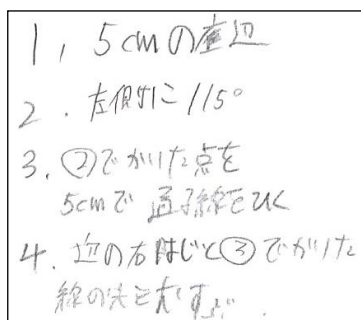 1, 5cmの底辺
2. 左側に115°
3. ②でかいた点を
5cmで 通る線をひく
4. 辺の右はじと③でかいた
線の先をむすぶ.